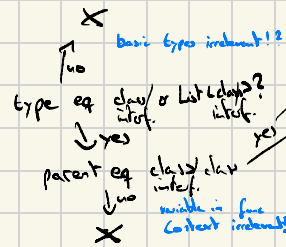 basic types irrelevant!?
no
type eq class/ or List<class>?
interf. interf.
yes
yes
parent eq class/class
interf.
no
variable in func
context irrelevant!